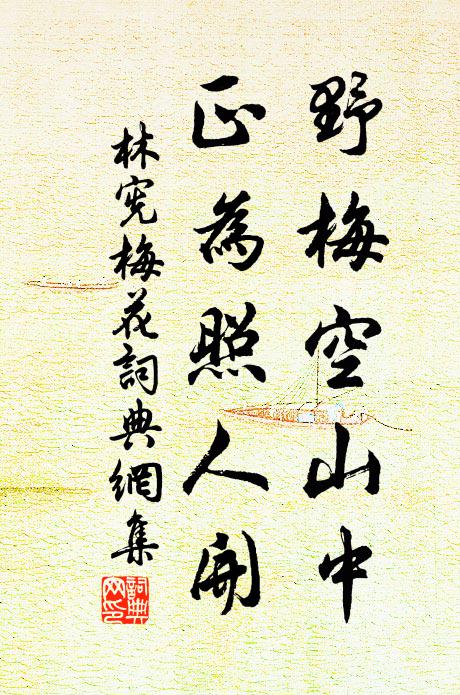 野梅空山中
正為照人開
林宪梅花詞典網集
詞典
网印